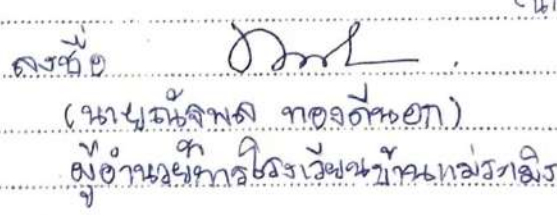 (นา
ลงชื่อ
(นายณัฐพล ทองดีนอก)
ผู้อำนวยการโรงเรียนบ้านแม่ระเมิง